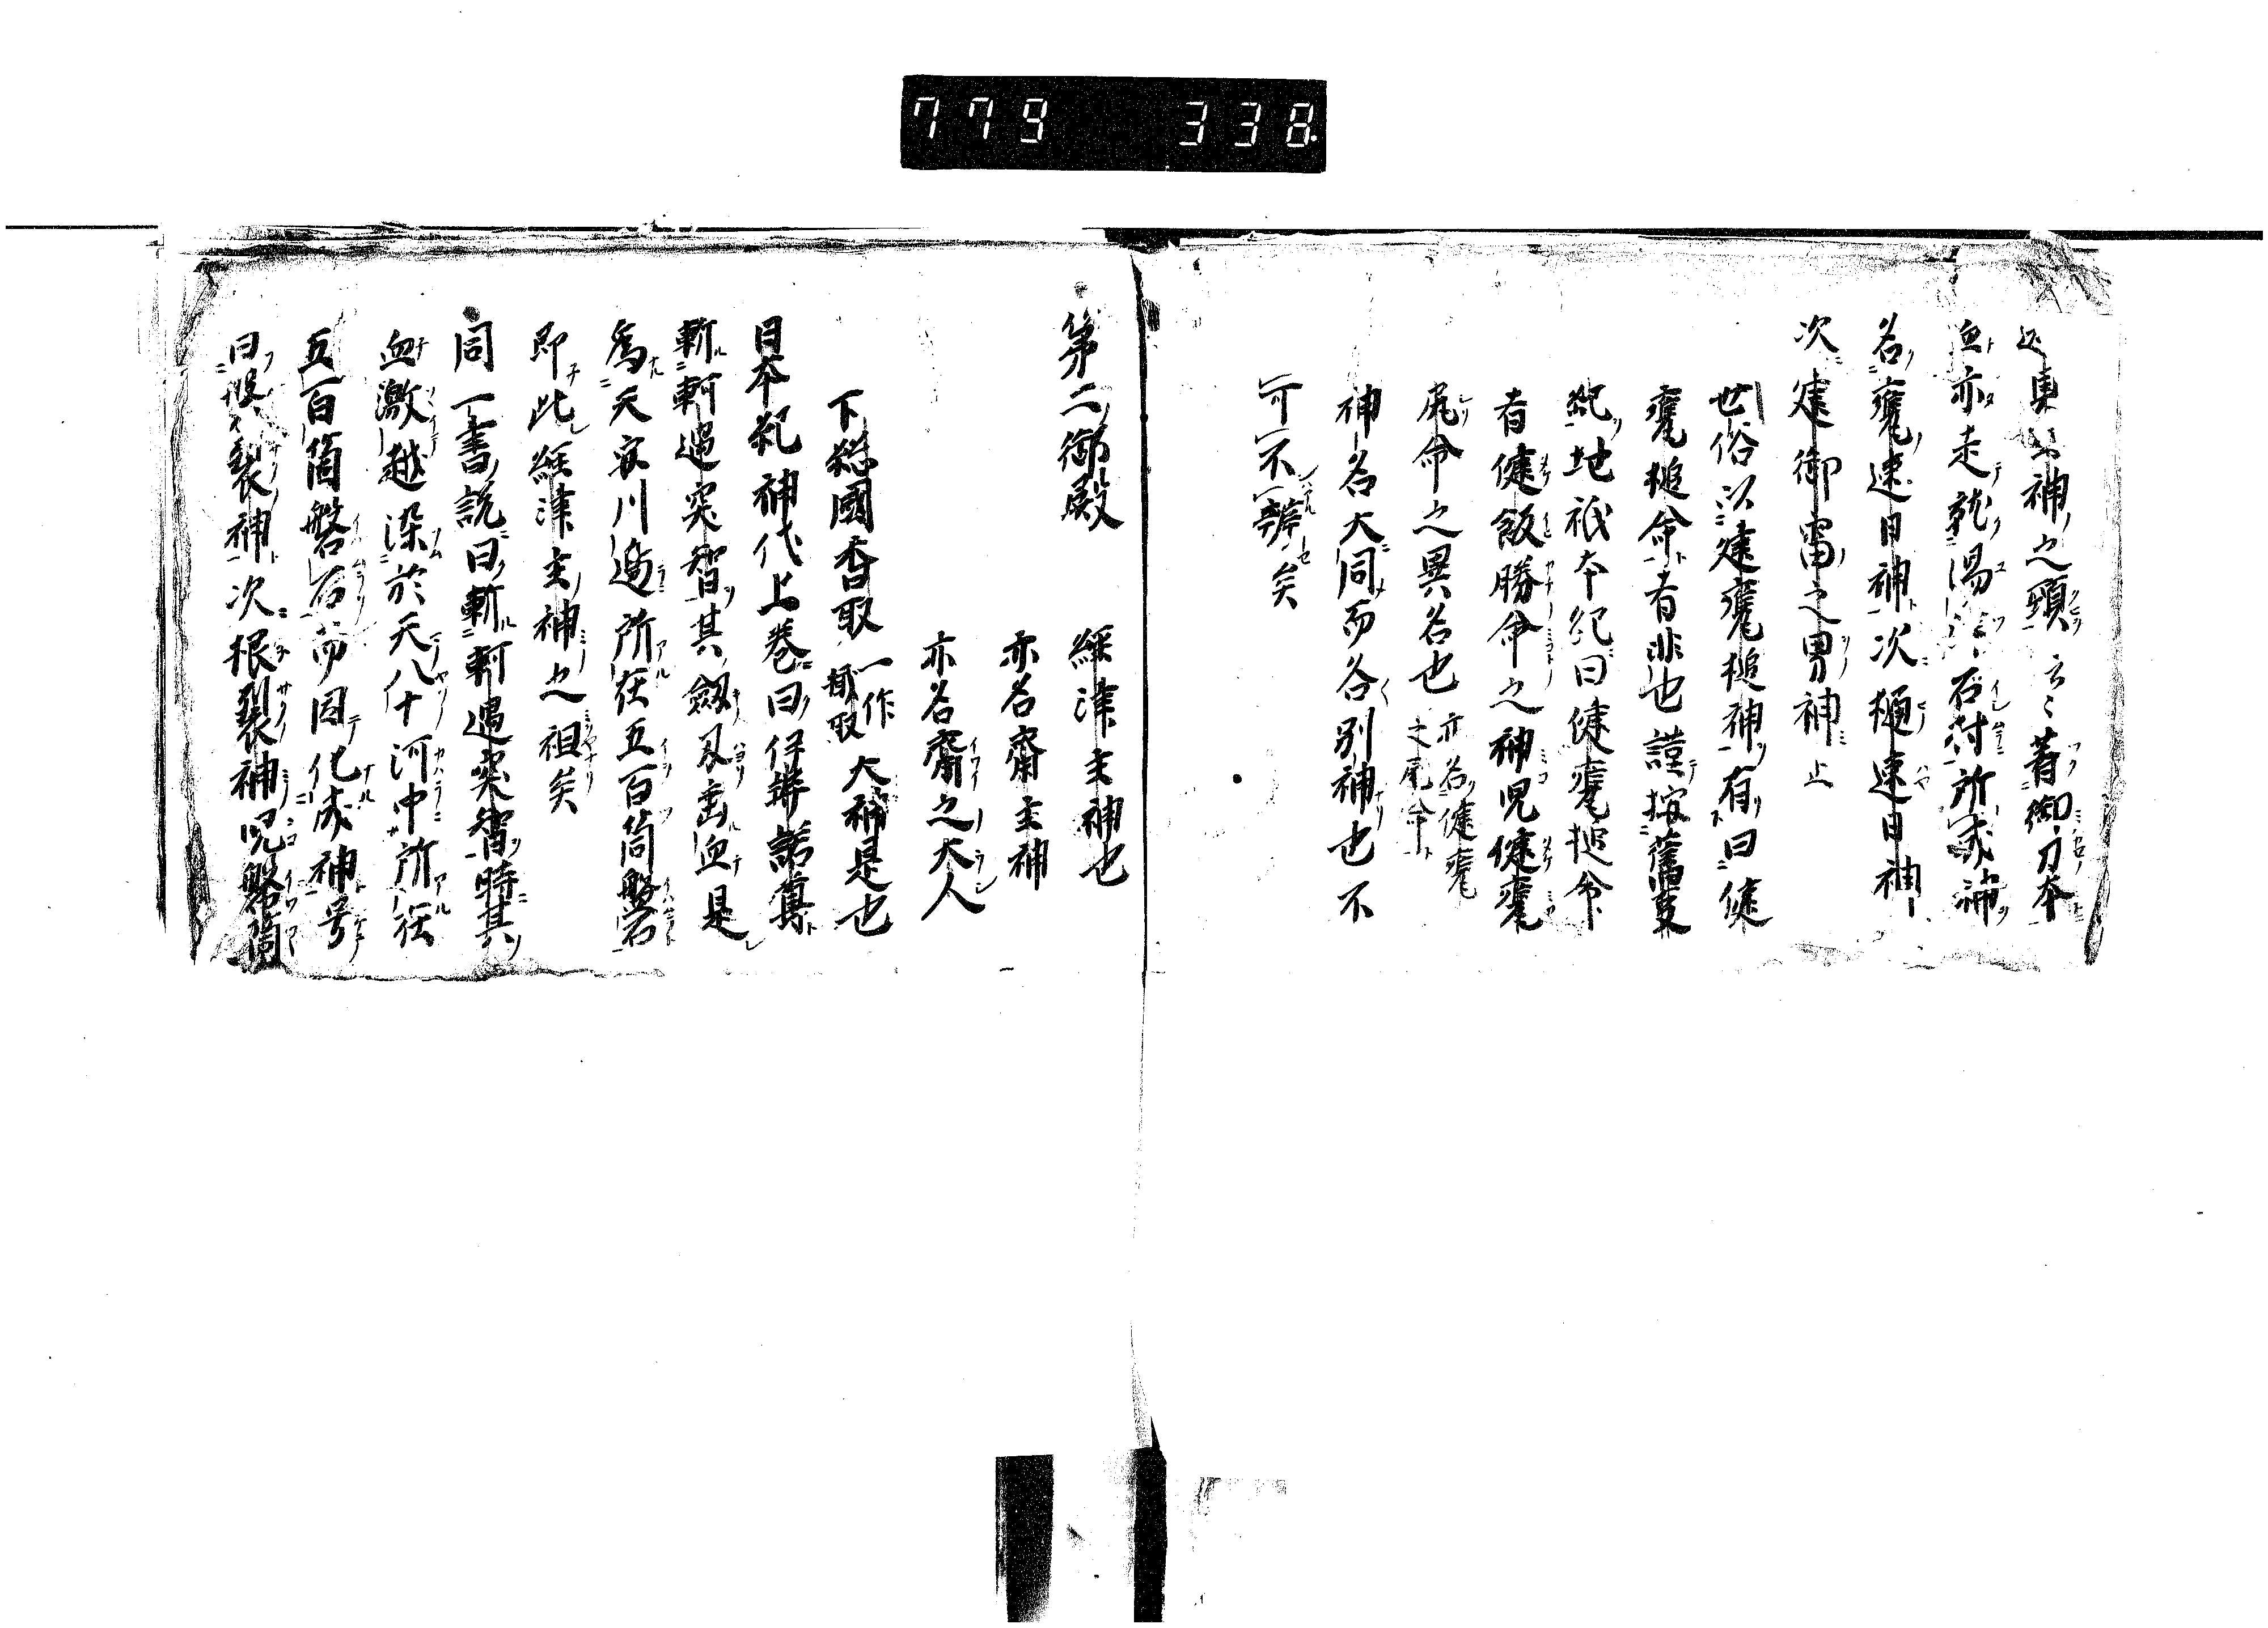 779 338
迦具土神之頸云々著御刀本
血亦走就湯津石村所成神
名甕速日神次樋速日神
次建御雷之男神上
世俗以建甕槌神有曰健
甕槌命者非也謹按舊事
紀地祇本紀曰健甕槌命
者健飯勝命之神児健甕
尻命之異名也亦名健甕
之尾命
神名大同而各別神也不
可不辨矣
第二御殿
經津主神也
亦名齋主神
亦名齋之大人
下総國香取一作
檝取大神是也
日本紀神代上巻曰伊弉諾尊
斬軻遇突智其劔刄垂血是
為天安川邉所在五百箇磐石
即此経津主神之祖矣
同一書説曰斬軻遇突智時其
血激越染於天八十河中所在
五百箇磐石而因化成神号
曰磐裂神次根裂神児磐筒